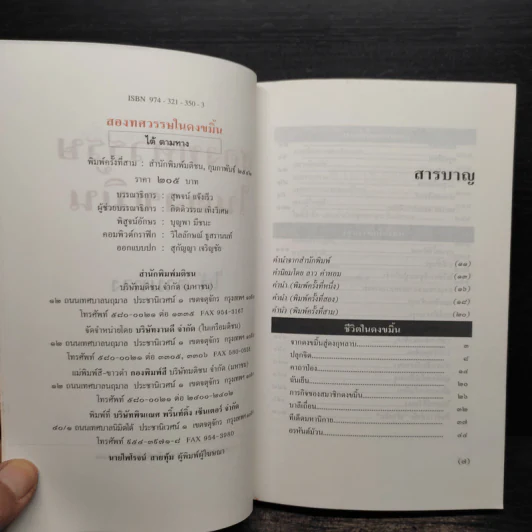 ISBN 974 - 321 - 350 - 3
สองทศวรรษในดงขมิ้น
ไต้ ตามทาง
พิมพ์ครั้งที่สาม : สำนักพิมพ์มติชน, กุมภาพันธ์
ราคา ๒๐๕ บาท
บรรณาธิการ : สุพจน์ แจ้งเร็ว
ผู้ช่วยบรรณาธิการ :
พิสูจน์อักษร : บุญพา มีชนะ
คอมพิวต์กราฟิก : วิไลลักษณ์
ออกแบบปก : สุกัญญา เจริญชัย
สำนักพิมพ์มติชน
บริษัทมติชน จำกัด (มหาชน)
๑๒ ถนนเทศบาลนฤมาล ประชานิเวศน์ ๑ เขตจตุจักร กรุงเทพฯ
โทรศัพท์ ๕๘๐-๐๐๒๑ ต่อ ๓๓๐๕ FAX
จัดจำหน่ายโดย บริษัทงานดี จำกัด (ในเครือมติชน)
๑๒ ถนนเทศบาลนฤมาล ประชานิเวศน์ ๑ เขตจตุจักร กรุงเทพฯ
โทรศัพท์ ๕๘๐-๐๐๒๑ ต่อ ๓๓๐๕, ๓๓๐๖ FAX
แม่พิมพ์สี-ขาวดำ กองพิมพ์สี บริษัทมติชน จำกัด (มหาชน)
๑๒ ถนนเทศบาลนฤมาล ประชานิเวศน์ ๑ เขตจตุจักร กรุงเทพฯ
โทรศัพท์ ๕๘๐-๐๐๒๑ ต่อ ๒๔๐๐-๒๔๐๒
พิมพ์ที่ บริษัทพิฆเณศ พริ้นท์ติ้ง เซ็นเตอร์ จำกัด
๙๐/๑ ถนนเทศบาลนิมิตใต้ ประชานิเวศน์ ๑ เขตจตุจักร กรุงเทพฯ
โทรศัพท์ FAX
นายไพโรจน์ สายทุ้ม ผู้พิมพ์ผู้โฆษณา
สารบาญ
คำนำจากสำนักพิมพ์ (๑๑)
คำนิยมโดย ลาว คำหอม (๑๓)
คำนำ (พิมพ์ครั้งที่หนึ่ง)
คำนำ (พิมพ์ครั้งที่สอง) (๑๘)
คำนำ (พิมพ์ครั้งที่สาม) (๒๐)
ชีวิตในดงขมิ้น
จากดงขมิ้นสู่ดงกุหลาบ ๓
ปลูกจิต ๘
คาถาปลง ๑๔
ทันเย็น ๒๐
ภารกิจของสมาชิกดงขมิ้น ๒๖
บาลีเถื่อน ๓๒
ทีเด็ดมหานิกาย ๓๗
อรหันต์ม้วน ๔๔